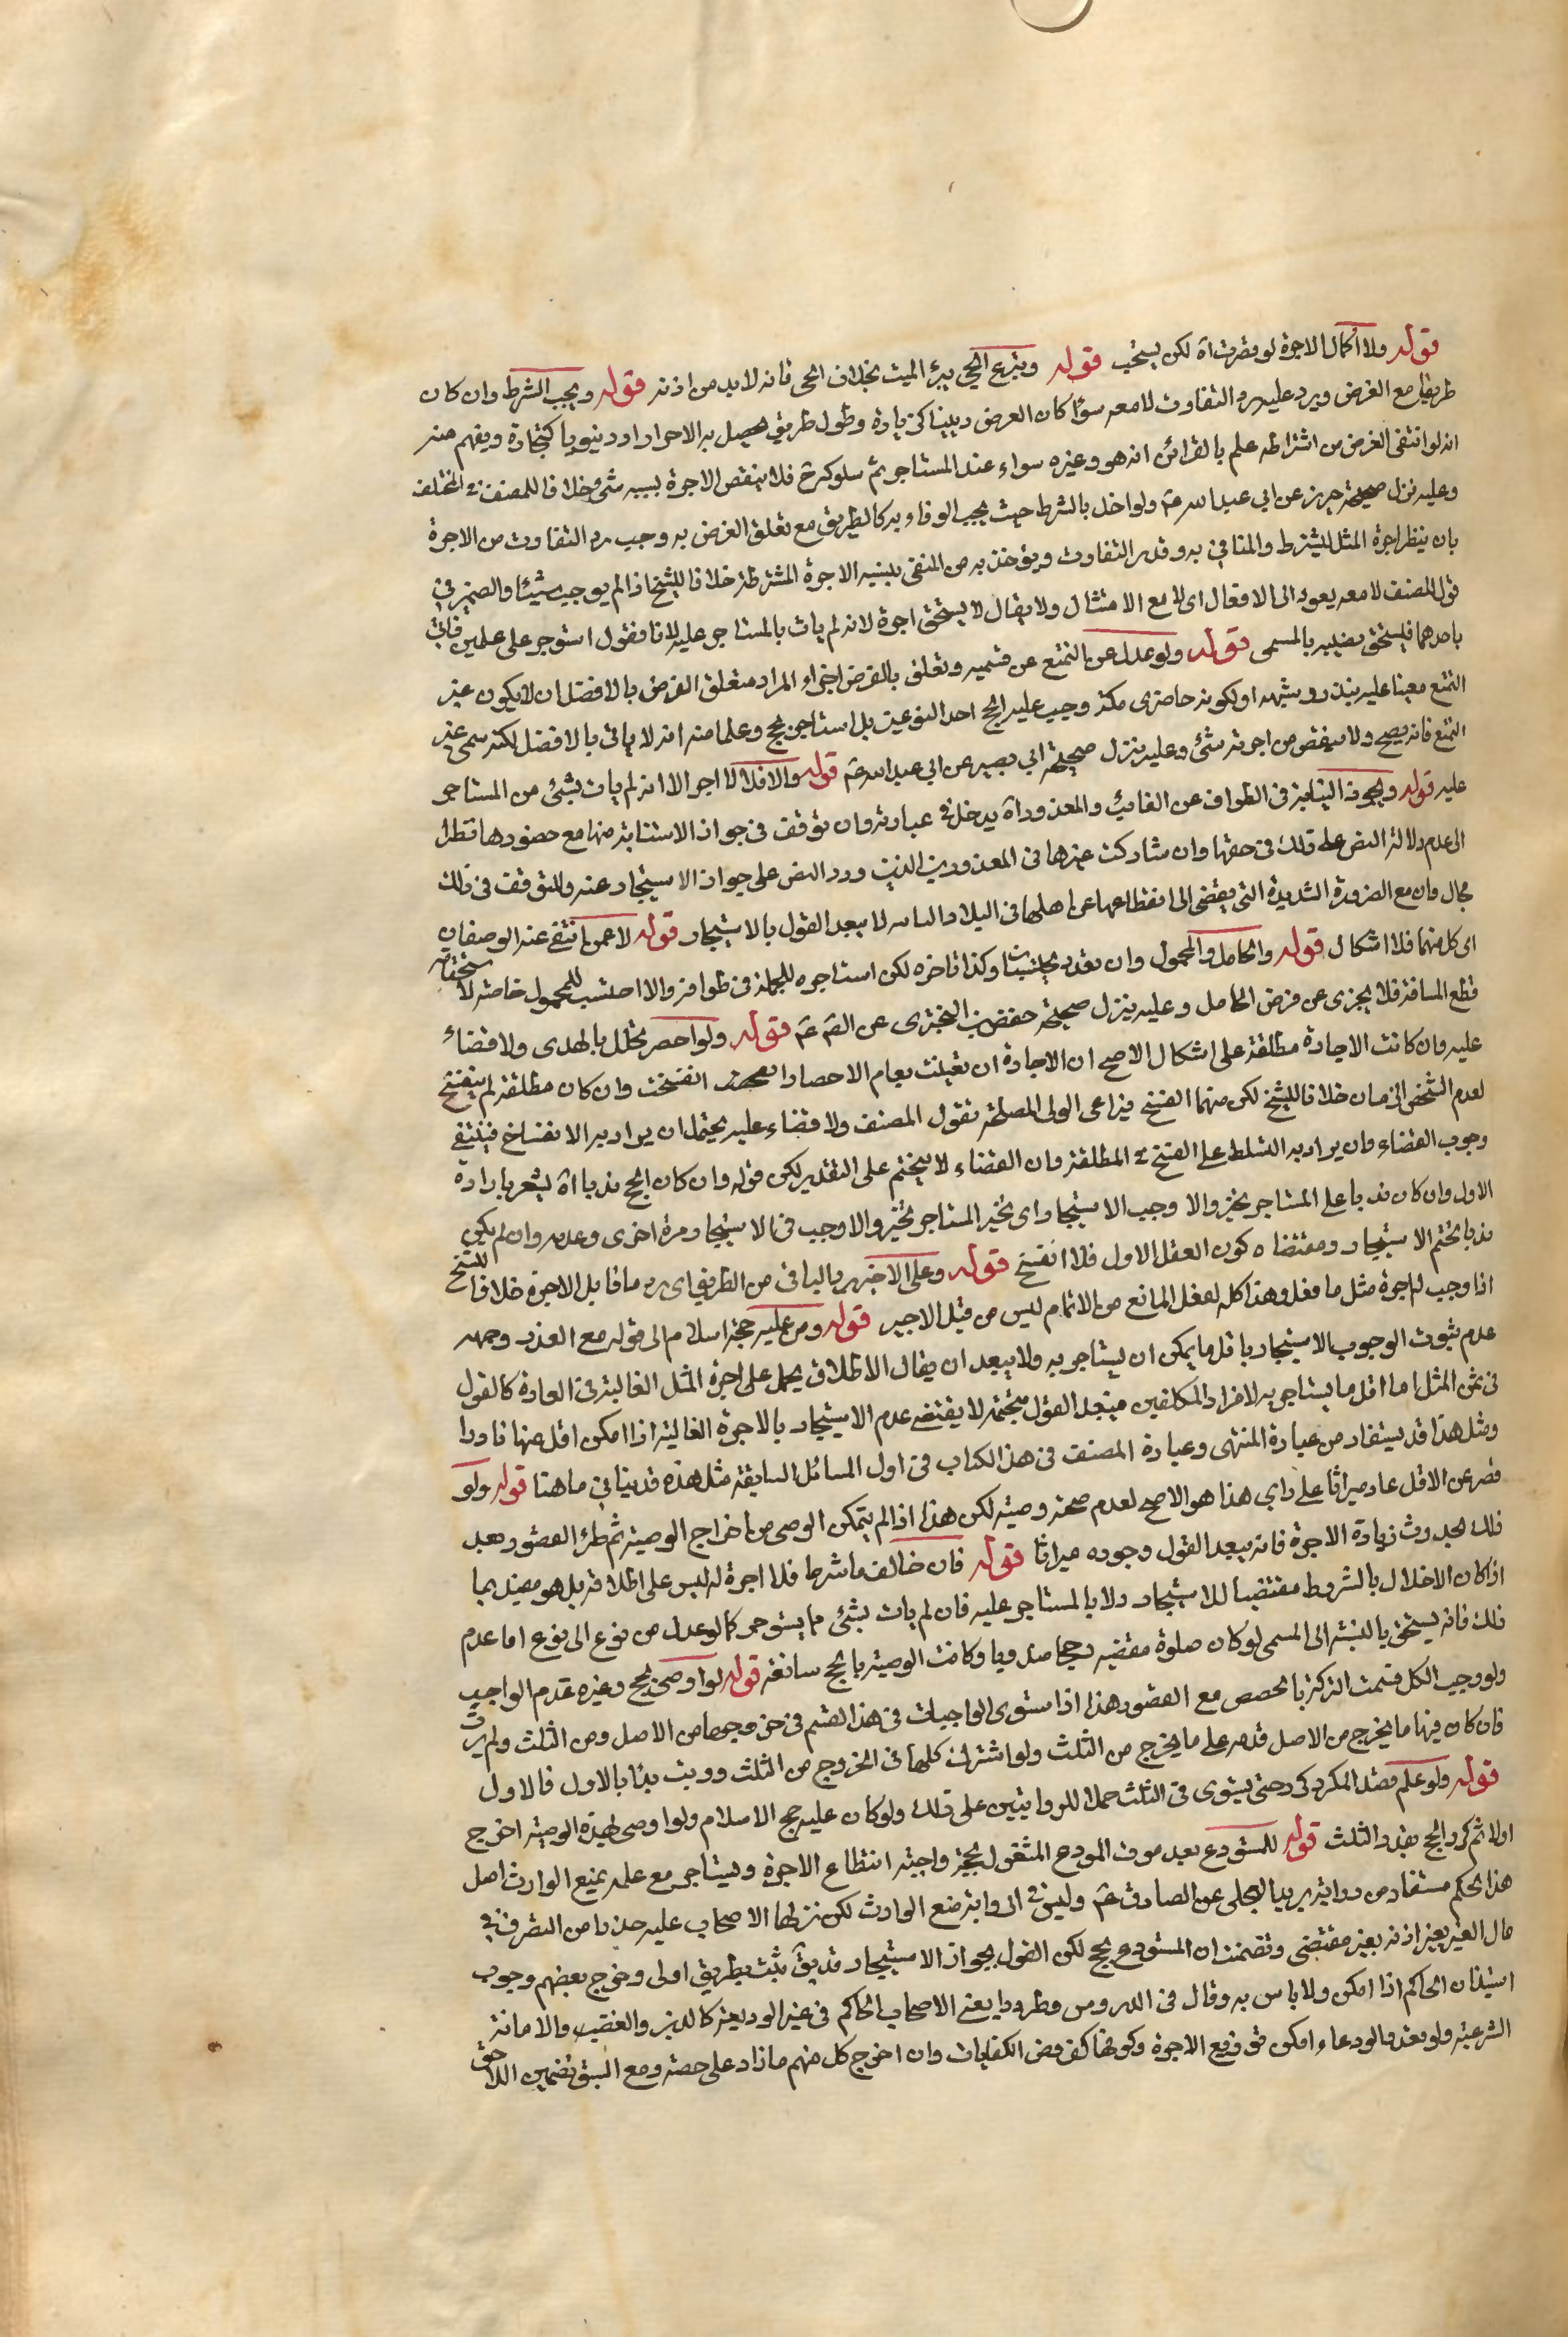 قوله ولا اكمال الاجرة لو قصرت اه لكن يستحب قوله وتبرع الحي يبرئ الميت بخلاف الحى فانه لا بد من اذنه قوله ويجب الشرط وان كان
طريقا مع الغرض ويرد عليه رد التفاوت لا معه سواء كان الغرض دينيا كزيادة وطول طريق يحصل به الاحرام او دنيويا كتجارة ويفهم منه
انه لو انتفى الغرض من اشتراطه علم بالقرائن انه هو وغيره سواء عند المستاجر ثم سلوكه فلا ينقص الاجرة بسببه شئ خلافا للمصنف في المختلف
وعليه نزل صحيحة حريز عن ابي عبدالله ع ولو اخل بالشرط حيث يجب الوفاء به كالطريق مع تعلق الغرض به وجب رد التفاوت من الاجرة
بان ينظر اجرة المثل للمشترط والمنافي به وقدر التفاوت ويؤخذ به من المنفى بنسبة الاجرة المشترطة خلافا للشيخ اذ لم يوجب شيئا والضمير في
قول المصنف لا معه يعود الى الافعال اى لا مع الامتثال ولا يقال لا يستحق اجرة لانه لم يات بالمستاجر عليه لانا نقول استوجر على عملين فاتى
باحدهما فيستحق نصيبه بالمسمى قوله ولو عدل عن التمتع عن قسميه وتعلق بالغرض اجزاء المراد متعلق الغرض بالافضل ان لا يكون عنه
التمتع معينا عليه بنذر وشبهه او لكونه حاضرى مكة وجب عليه الحج احد النوعين بل استاجر لحج وعلما منه انه لا ياتى بالافضل لكنه سمى غير
التمتع فانه يصح ولا ينقص من اجرته شئ وعليه ينزل صحيحة ابي بصير عن ابي عبدالله ع قوله والا فلا لا اجر الا انه لم يات بشئ من المستاجر
عليه قوله ويجوز النيابة في الطواف عن الغائب والمعذور اه يدخل في عبارته وان توقف في جواز الاستنابة منها مع حضورها نظرا
الى عدم دلالة النص على ذلك في حقها وان شاركت غيرها في المعذورين الذين ورد النص على جواز الاستيجار عنه وللتوقف في ذلك
مجال وان مع الضرورة الشديدة التى يفضى الى انقطاعها عن اهلها في البلاد النائية لا يبعد القول بالاستيجار قوله لا عمن انتفى عنه الوصفان
اى كل منهما فلا اشكال قوله والحامل والمحمول وان تعدد وكذا ناخره لكن استاجره للحمل في طوافه والا احتسب للمحمول خاصة لاستحقاقه
قطع المسافة فلا يجزى عن فرض الحامل وعليه ينزل صحيحة حفص بن البخترى عن الصادق ع قوله ولو احصر تحلل بالهدى ولا قضاء
عليه وان كانت الاجارة مطلقة على اشكال الاصح ان الاجارة ان تعينت بعام الاحصار انفسخت وان كان مطلقة لم ينفسخ
لعدم الشخص الزمان خلافا للشيخ لكن منهما الفسخ فيراعى الولى المصلحة نقول المصنف ولا قضاء عليه يحتمل ان يراد به الانفساخ فينتفى
وجوب القضاء وان يراد به التسلط على الفسخ في المطلقة وان القضاء لا يتحتم على التقدير لكن قوله وان كان الحج ندبا اه يشعر بارادة
الاول وان كان ندبا على المستاجر يخير والا وجب الاستيجار اى تخير المستاجر تخير والا وجب في الاستيجار مرة اخرى وعدمه وان لم يكن
ندبا تحتم الاستيجار ومقتضاه كون العقل الاول فلا انفسخ قوله وعلى الاجير رد الباقي من الطريق اى رد ما قابل الاجرة خلافا للشيخ
اذا وجب له اجرة مثل ما فعل وهذا كله لفعل المانع من الاتمام ليس من قبل الاجير قوله ومن عليه حجة اسلام الى قوله مع العذر وجهه
عدم ثبوت الوجوب الاستيجار باقل ما يمكن ان يستاجر به ولا يبعد ان يقال الاطلاق يحمل على اجرة المثل الغالبة في العادة كالقول
في ثمن المثل اما اقل ما يستاجر به لافراد المكلفين فيبعد القول بتحتمه لا يقتضى عدم الاستيجار بالاجرة الغالية اذا امكن اقل منها نادرا
ومثل هذا قد يستفاد من عبارة المنتهى وعبارة المصنف في هذا الكتاب في اول المسائل السابقة مثل هذه قد ينافي ما هنا قوله ولو
قصر عن الاقل عاد ميراثا على راى هذا هو الاصح لعدم صحة وصيته لكن هذا اذا لم يتمكن الوصى من اخراج الوصية ثم طرا القصور وبعد
ذلك لحدوث زيادة الاجرة فانه يبعد القول وجوده ميراثا قوله فان خالف ما شرطا فلا اجرة له ليس على اطلاقه بل هو مقيد بما
اذا كان الاخلال بالشروط مقتضيا للاستيجار ولا بالمستاجر عليه فان لم يات بشئ مما يستوجر كما لو عدل من نوع الى نوع اما عدم
ذلك فانه يستحق بالنسبة الى المسمى لو كان صلوة مقضيه وكانت الوصية بالحج سائغة قوله لو اوصى بحج وغيره قدم الواجب
ولو وجب الكل قسمت التركة بالحصص مع القصور هذا اذا استوى الواجبات في هذا القسم في حق وجوبها من الاصل ومن الثلث ولم يرتب
فان كان فيها ما يخرج من الاصل قدم على ما يخرج من الثلث ولو اشترك كلها في الخروج من الثلث ورتب بدئ بالاول فالاول
قوله ولو علم قصد المكرر كرر حتى يستوى في الثلث حملا للروايتين على ذلك ولو كان عليه حج الاسلام ولو اوصى بهذه الوصية اخرج
اولا ثم كرر الحج بقدر الثلث قوله للمستودع بعد موت المودع المشغول بحجة واجبة انتطاع الاجرة ويستاجر مع علمه بمنع الوارث اصل
هذا الحكم مستفاد من رواية بريد العجلى عن الصادق ع وليس في الرواية منع الوارث لكن نزلها الاصحاب عليه حذرا من التصرف في
مال الغير بغير اذنه بغير مقتضى وتضمنت ان المستودع يحج لكن القول بجواز الاستيجار قد يق يثبت بطريق اولى وخرج بعضهم وجوب
استيذان الحاكم اذا امكن ولا باس به وقال في الدروس وطرد بعض الاصحاب الحاكم في غير الوديعة كالدين والغصب والامانة
الشرعية ولو تعدد الودعاء امكن توزيع الاجرة وكونها كفروض الكفايات وان اخرج كل منهم ما زاد على حصته ومع السبق تضمين اللاحق